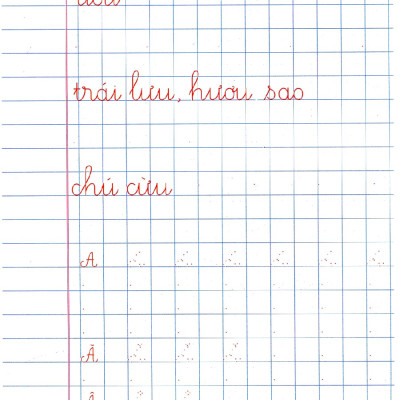 trái lựu, hươu sao
chú cừu
A
Ă
Â